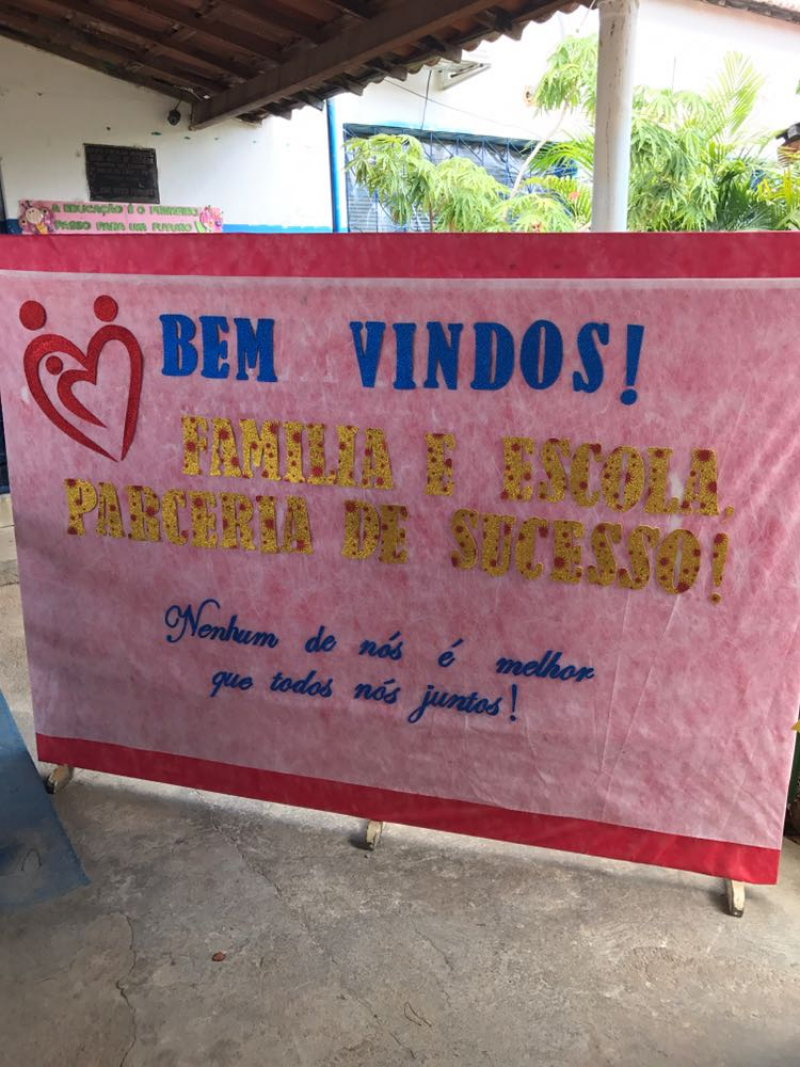 A EDUCAÇÃO É O PRIMEIRO
PASSO PARA UM FUTURO
BEM VINDOS!
FAMILIA E ESCOLA,
PARCERIA DE SUCESSO!
Nenhum de nós é melhor
que todos nós juntos!